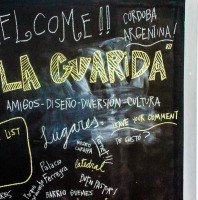 WELCOME!!
CÓRDOBA
ARGENTINA!
"LA GUARIDA"
AMIGOS-DISEÑO-DIVERSIÓN-CULTURA
LIST
Lugares:
LEAVE YOUR COMMENT
TE GUSTÓ?
PASEO
Palacio
Ferreyra
Catedral
BARRIO GÜEMES